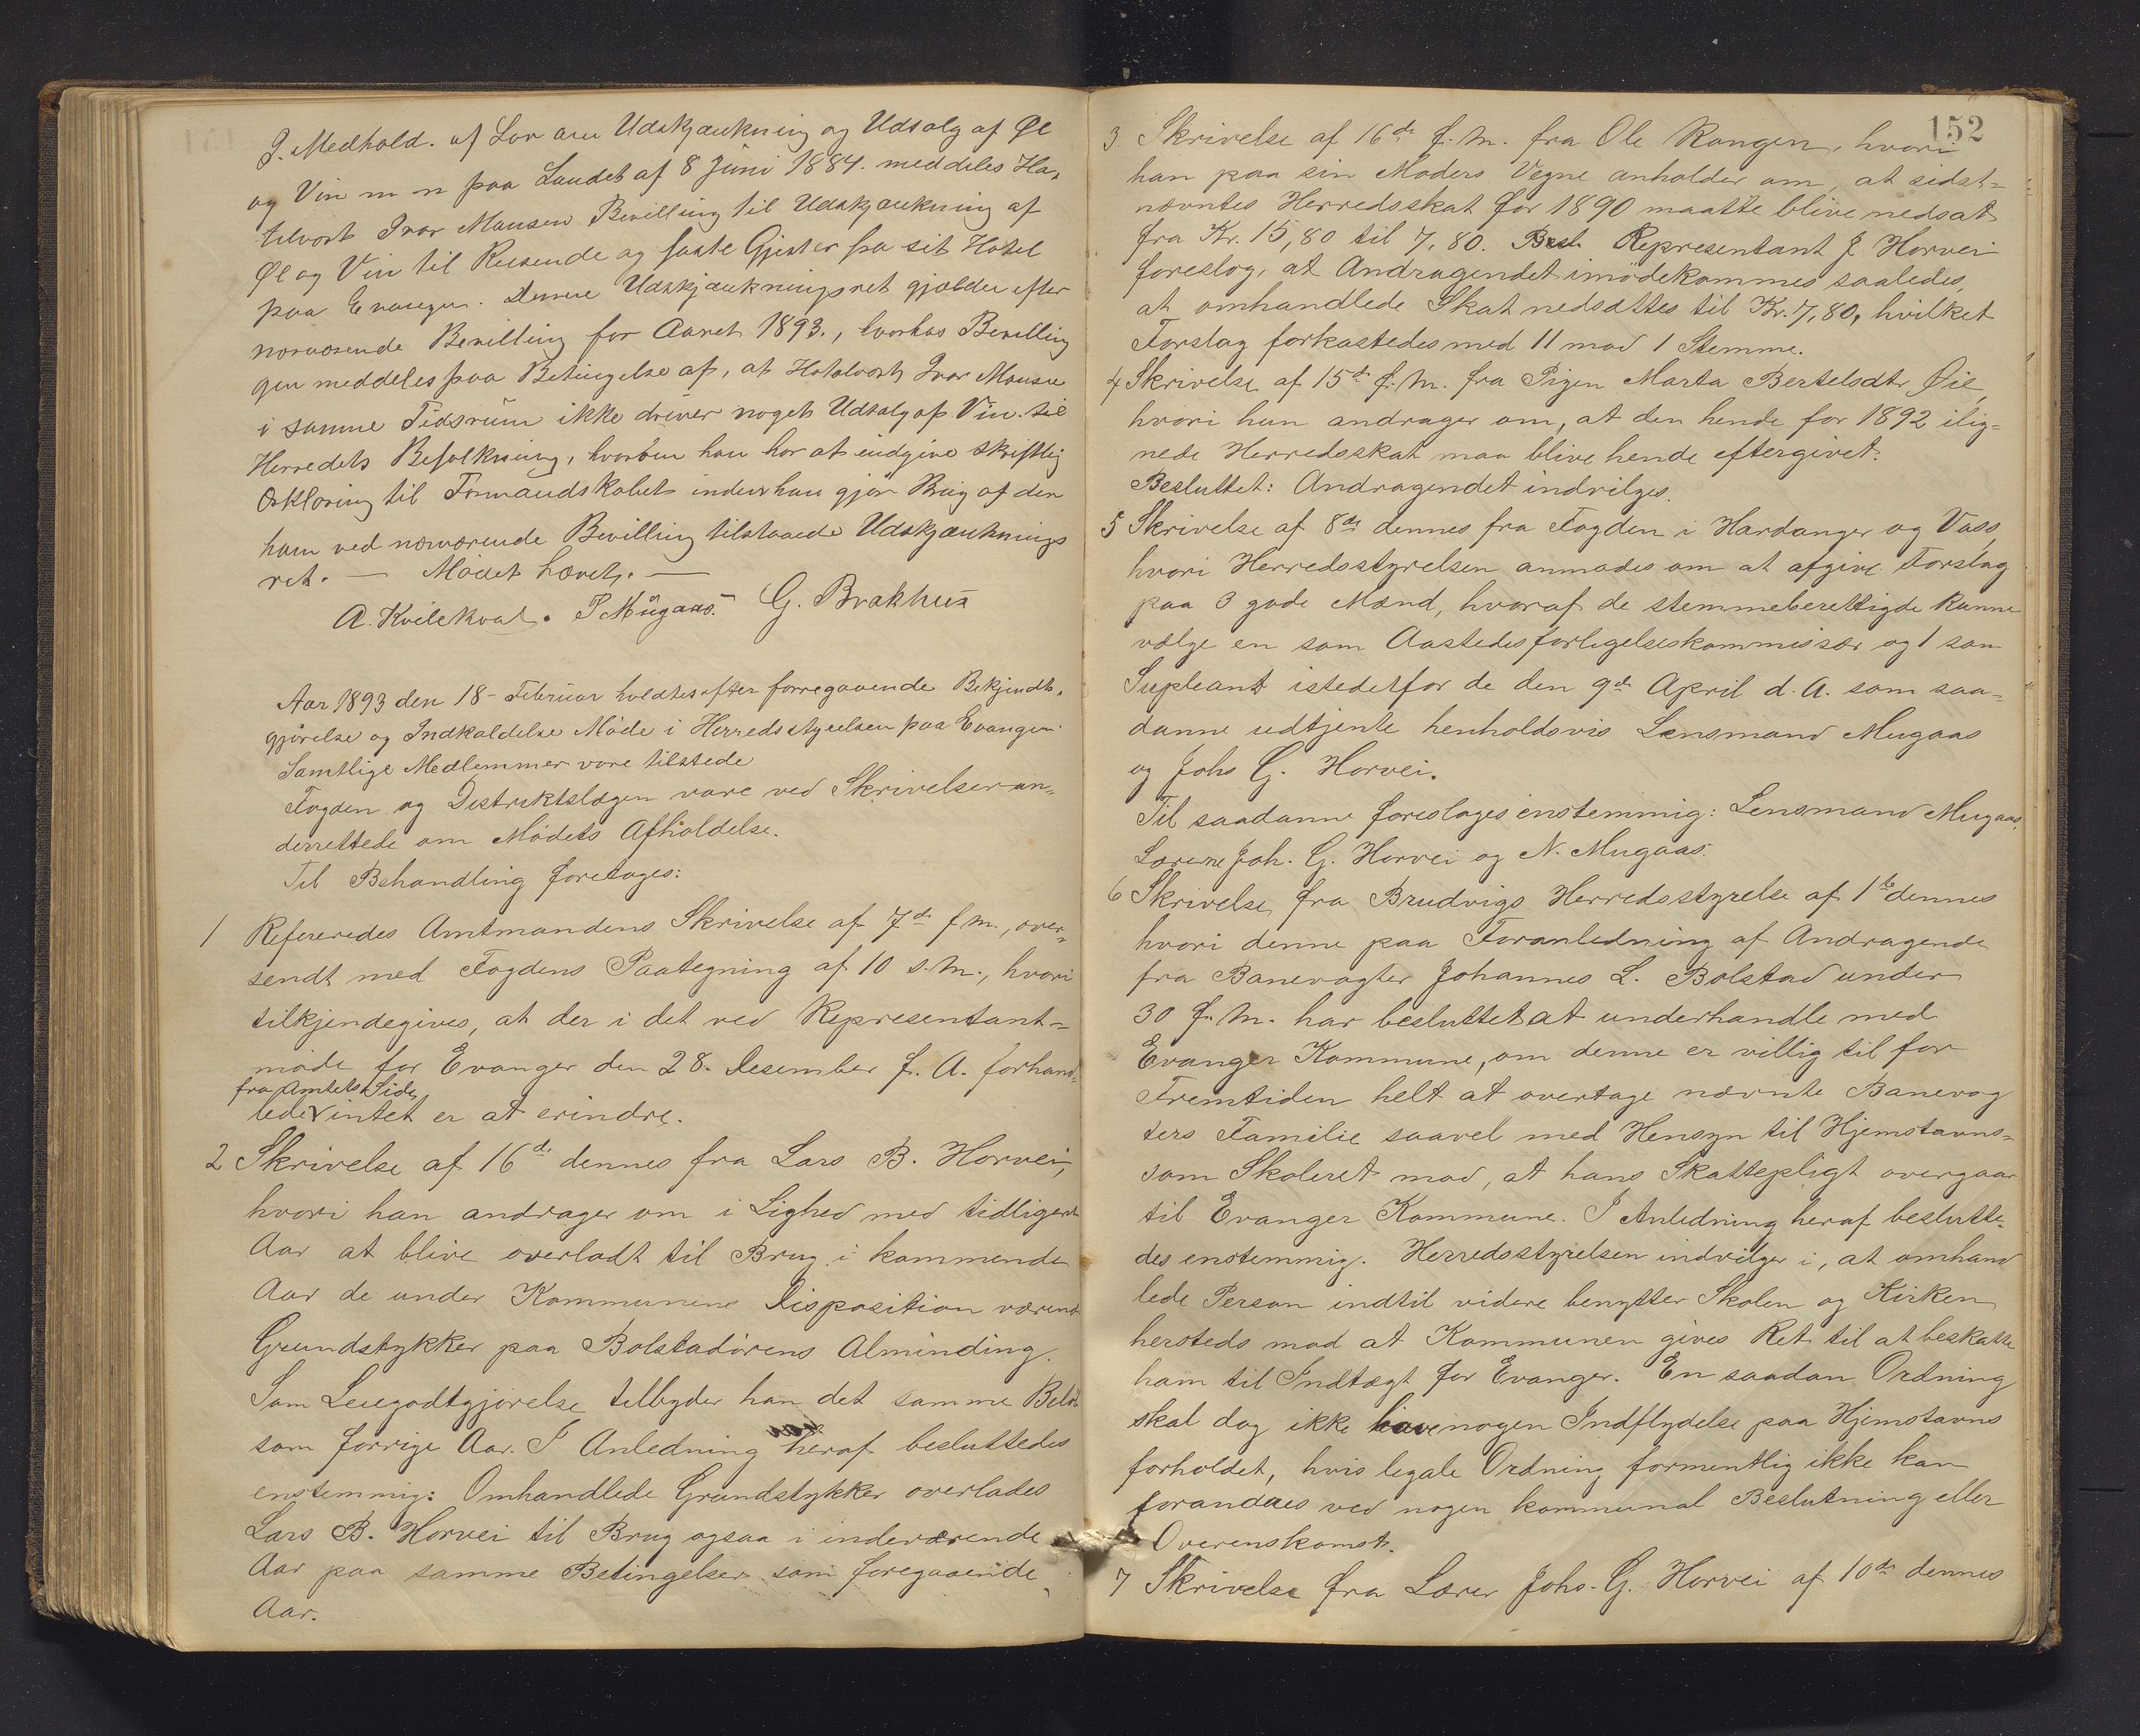 I. Medhold. af Lov om Udskjænkning og Udsalg af Øl
og Vin m n paa Landet af 8 Juni 1884. meddeles Ho-
telvært Ivar Monsen Bevilling til Udskjænkning af
Øl og Vin til Reisende og faste Gjester paa sit Hotel
paa Evanger. Denne Udskjænkningsret gjælder efter
nærværende Bevilling for Aaret 1893., hvorhos Bevilling
gen meddeles paa Betingelse af, at Hotelvært Ivar Monsen
i samme Tidsrum ikke driver noget Udsalg af Vin til
Herredets Befolkning, hvorom han har at indgive skriftlig
Erklæring til Formandskabet inden han gjør Brug af den
ham ved nærværende Bevilling tilstaaede Udskjænknings
ret. — Mødet hævet. —
A. Kvilekval. P Mügaas. G. Brakhus
Aar 1893 den 18- Februar holdtes efter forregaaende Bekjendt-
gjørelse og Indkaldelse Møde i Herredsstyrelsen paa Evanger.
Samtlige Medlemmer vare tilstede
Fogden og Distriktslægen vare ved Skrivelser un-
derrettede om Mødets Afholdelse.
Til Behandling foretages:
1 Refereredes Amtmandens Skrivelse af 7de f. m., over-
sendt med Fogdens Paategning af 10 s. M., hvori
tilkjendegives, at der i det ved Representant-
møde for Evanger den 28. Desember f. A. forhand-
fra Amtets Side
lede intet er at erindre.
2 Skrivelse af 16de dennes fra Lars B. Horvei,
hvori han andrager om i Lighed med tidligere
Aar at blive overladt til Brug i kommende
Aar de under Kommunens Disposition værende
Grundstykker paa Bolstadørens Alminding.
Som Leiegodtgjørelse tilbyder han det samme Beløb
som forrige Aar. I Anledning heraf besluttedes
enstemmig: Omhandlede Grundstykker overlades
Lars B. Horvei til Brug ogsaa i indeværende
Aar paa samme Betingelser som foregaaende
Aar.
152
3 Skrivelse af 16de f. M. fra Ole Rongen, hvori
han paa sin Moders Vegne anholder om, at sidst-
nævntes Herredsskat for 1890 maatte blive nedsat
fra Kr. 15,80 til 7,80. Besl. Representant J. Horvei
foreslog, at Andragendet imødekommes saaledes,
at omhandlede Skat nedsættes til Kr. 7,80, hvilket
Forslag forkastedes med 11 mod 1 Stemme.
4 Skrivelse af 15de f. M. fra Pigen Marta Bertelsdtr Øie,
hvori hun andrager om, at den hende for 1892 ilig-
nede Herredsskat maa blive hende eftergivet.
Besluttet: Andragendet indvilges.
5 Skrivelse af 8de dennes fra Fogden i Hardanger og Voss,
hvori Herredsstyrelsen anmodes om at afgive Forslag
paa 3 gode Mænd, hvoraf de stemmeberettigde kunne
vælge en som Aastedsforligelseskommissær og 1 som
Supleant istedetfor de den 9de April d. A. som saa-
danne udtjente henholdsvis Lensmand Mugaas
og Johs G. Horvei.
Til saadanne foreslages enstemmig: Lensmand Mugaas,
Lærerne Joh. G. Horvei og N. Mugaas.
6 Skrivelse fra Brudvigs Herredsstyrelse af 1te dennes
hvori denne paa Foranledning af Andragende
fra Banevogter Johannes L. Bolstad under
30 f. M. har besluttet at underhandle med
Evanger Kommune, om denne er villig til for
Fremtiden helt at overtage nævnte Banevog
ters Familie saavel med Hensyn til Hjemstavns-
som Skoleret mod, at hans Skattepligt overgaar
til Evanger Kommune. I Anledning heraf beslutte-
des enstemmig. Herredsstyrelsen indvilger i, at omhand
lede Person indtil videre benytter Skolen og Kirken
hersteds mod at Kommunen gives Ret til at beskatte
ham til Indtægt for Evanger. En saadan Ordning
skal dog ikke have nogen Indflydelse paa Hjemstavns
forholdet, hvis legale Ordning formentlig ikke kan
forandres ved nogen kommunal Beslutning eller
Overenskomst.
7 Skrivelse fra Lærer Johs. G. Horvei af 10de dennes